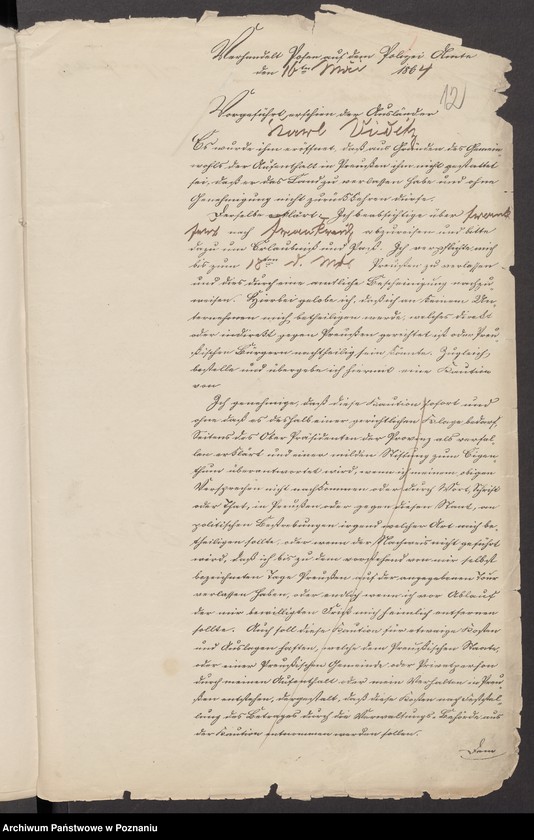 Verhandelt Posen auf dem Polizei Amte
den 16ten Mai 1864
12
Vorgeführt erschien der Ausländer
Karl
Es wurde ihm eröffnet, daß aus Gründen des Gemein-
wohls der Aufenthalt in Preußen ihm nicht gestattet
sei, daß er das Land zu verlassen habe und ohne
Genehmigung nicht zurückkehren dürfe.
Derselbe erklärt: Ich beabsichtige über
nach Frankreich abzureisen und bitte
dazu um Erlaubniß und Paß. Ich verpflichte mich
bis zum 18ten d. Mts. Preußen zu verlassen
und dies durch eine amtliche Bescheinigung nachzu-
weisen. Hierbei gelobe ich, daß ich an keinem Un-
ternehmen mich betheiligen werde, welches direkt
oder indirekt gegen Preußen gerichtet ist oder Preu-
ßischen Bürgern nachtheilig sein könnte. Zugleich
bestelle und übergebe ich hiermit eine Kaution
von
Ich genehmige, daß diese Kaution sofort und
ohne daß es deshalb einer gerichtlichen Klage bedarf,
Seitens des Ober Präsidenten der Provinz als verfal-
len erklärt und einer milden Stiftung zum Eigen-
thum überantwortet wird, wenn ich meinem obigen
Versprechen nicht nachkommen oder durch Wort, Schrift
oder That, in Preußen oder gegen diesen Staat, an
politischen Bestrebungen irgend welcher Art mich be-
theiligen sollte, oder wenn der Nachweis nicht geführt
wird, daß ich bis zu dem vorstehend von mir selbst
bezeichneten Tage Preußen auf der angegebenen Tour
verlassen haben, oder endlich wenn ich vor Ablauf
der mir bewilligten Frist mich heimlich entfernen
sollte. Auch soll diese Kaution für etwaige Kosten
und Auslagen haften, welche dem Preußischen Staate,
oder einer Preußischen Gemeinde oder Privatperson
durch meinen Aufenthalt oder mein Verhalten in Preu-
ßen entstehen, dergestalt, daß diese Kosten nach Feststel-
lung des Betrages durch die Verwaltungs-Behörde aus
der Kaution entnommen werden sollen.
Archiwum Państwowe w Poznaniu